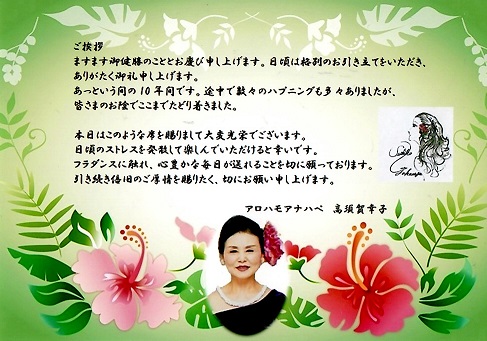 ご挨拶
ますます御健勝のこととお慶び申し上げます。日頃は格別のお引き立てをいただき、
ありがたく御礼申し上げます。
あっという間の10年間です。途中で数々のハプニングも多々ありましたが、
皆さまのお陰でここまでたどり着きました。
本日はこのような席を賜りまして大変光栄でございます。
日頃のストレスを発散して楽しんでいただけると幸いです。
フラダンスに触れ、心豊かな毎日が送れることを切に願っております。
引き続き倍旧のご厚情を賜りたく、切にお願い申し上げます。
アロハモアナハベ 高須賀幸子